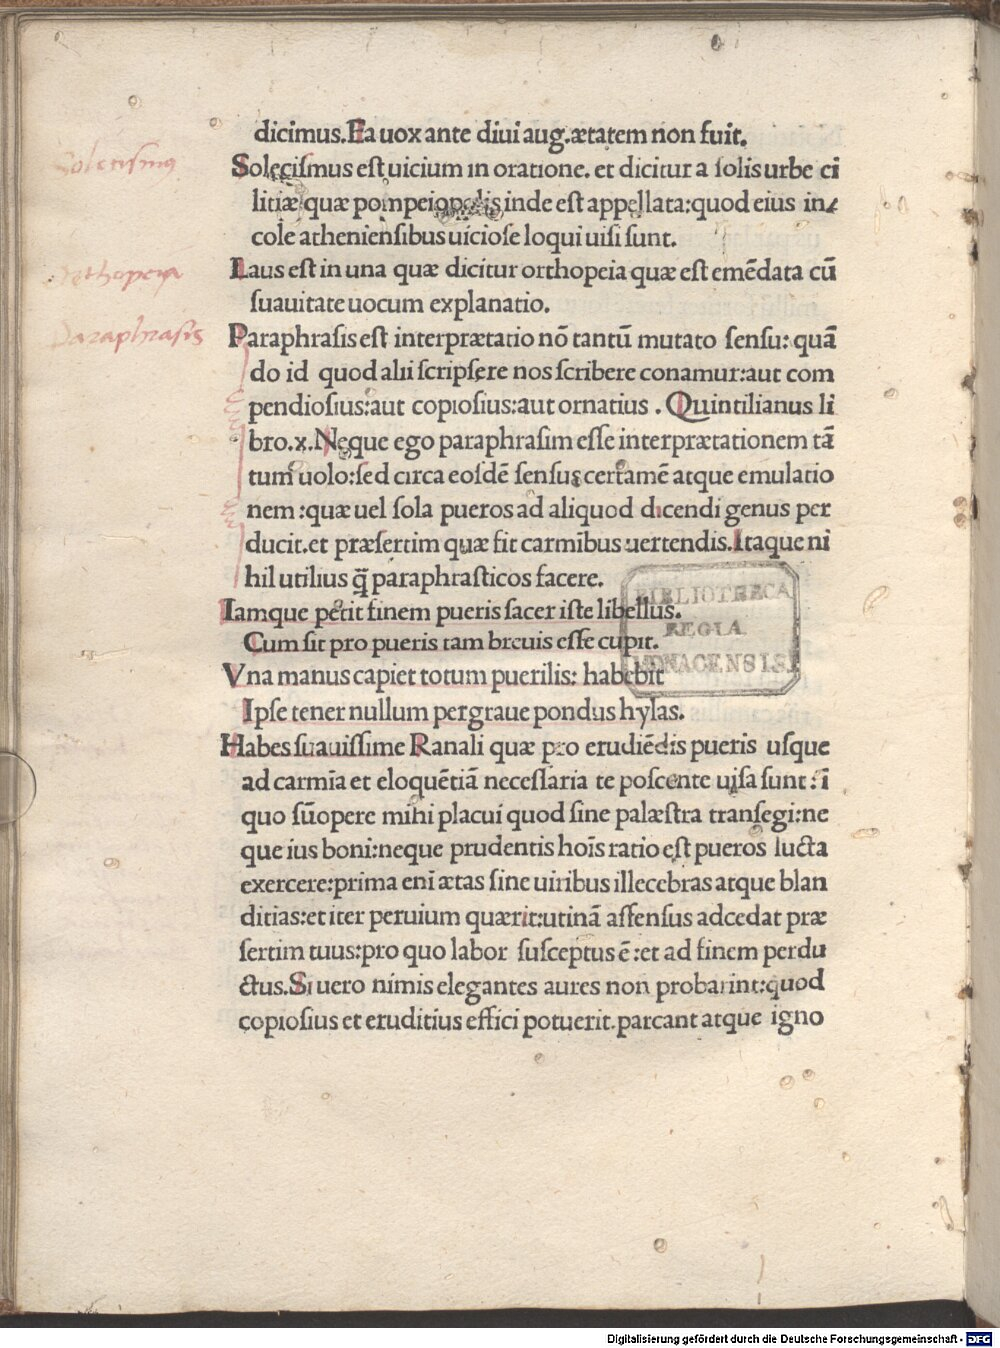 dicimus.Ea uox ante diui aug.ætatem non fuit.
Solecismus Soleciſmus est uicium in oratione. et dicitur a ſolis urbe ci
litiæ quæ pompeiopolis inde eſt appellata:quod eius in⸗
cole athenienſibus uicioſe loqui uiſi ſunt.
Orthopeya Laus eſt in una quæ dicitur orthopeia quæ eſt emēdata cū
ſuauitate uocum explanatio.
Paraphrasis Paraphraſis eſt interprætatio nō tantū mutato ſenſu: quā
do id quod alii ſcripſere nos ſcribere conamur:aut com
pendioſius:aut copioſius:aut ornatius . Quintilianus li
bro.x.Neque ego paraphraſim eſſe interprætationem tā
tum uolo:ſed circa eoſdē ſenſus certamē atque emulatio
nem :quæ uel ſola pueros ad aliquod dicendi genus per
ducit.et præſertim quæ fit carmibus uertendis.Itaque ni
hil utilius q̄ paraphraſticos facere.
Iamque petit finem pueris ſacer iſte libellus.
Cum ſit pro pueris tam breuis eſſe cupit.
Vna manus capiet totum puerilis: habebit
Ipſe tener nullum per graue pondus hylas.
Habes ſuauiſſime Ranali quæ pro erudiēdis pueris uſque
ad carmīa et eloquētiā neceſſaria te poſcente uiſa ſunt: ī
quo ſūopere mihi placui quod ſine palæſtra tranſegi:ne
que ius boni:neque prudentis hoīs ratio eſt pueros lucta
exercere:prima enī ætas ſine uiribus illecebras atque blan
ditias:et iter peruium quærit:utinā aſſenſus adcedat præ
ſertim tuus:pro quo labor ſuſceptus ē:et ad finem perdu
ctus.Si uero nimis elegantes aures non probarint:quod
copioſius et eruditius effici potuerit.parcant atque igno
BIBLIOTHECA
REGIA
MONACENSIS
Digitalisierung gefördert durch die Deutsche Forschungsgemeinschaft - DFG